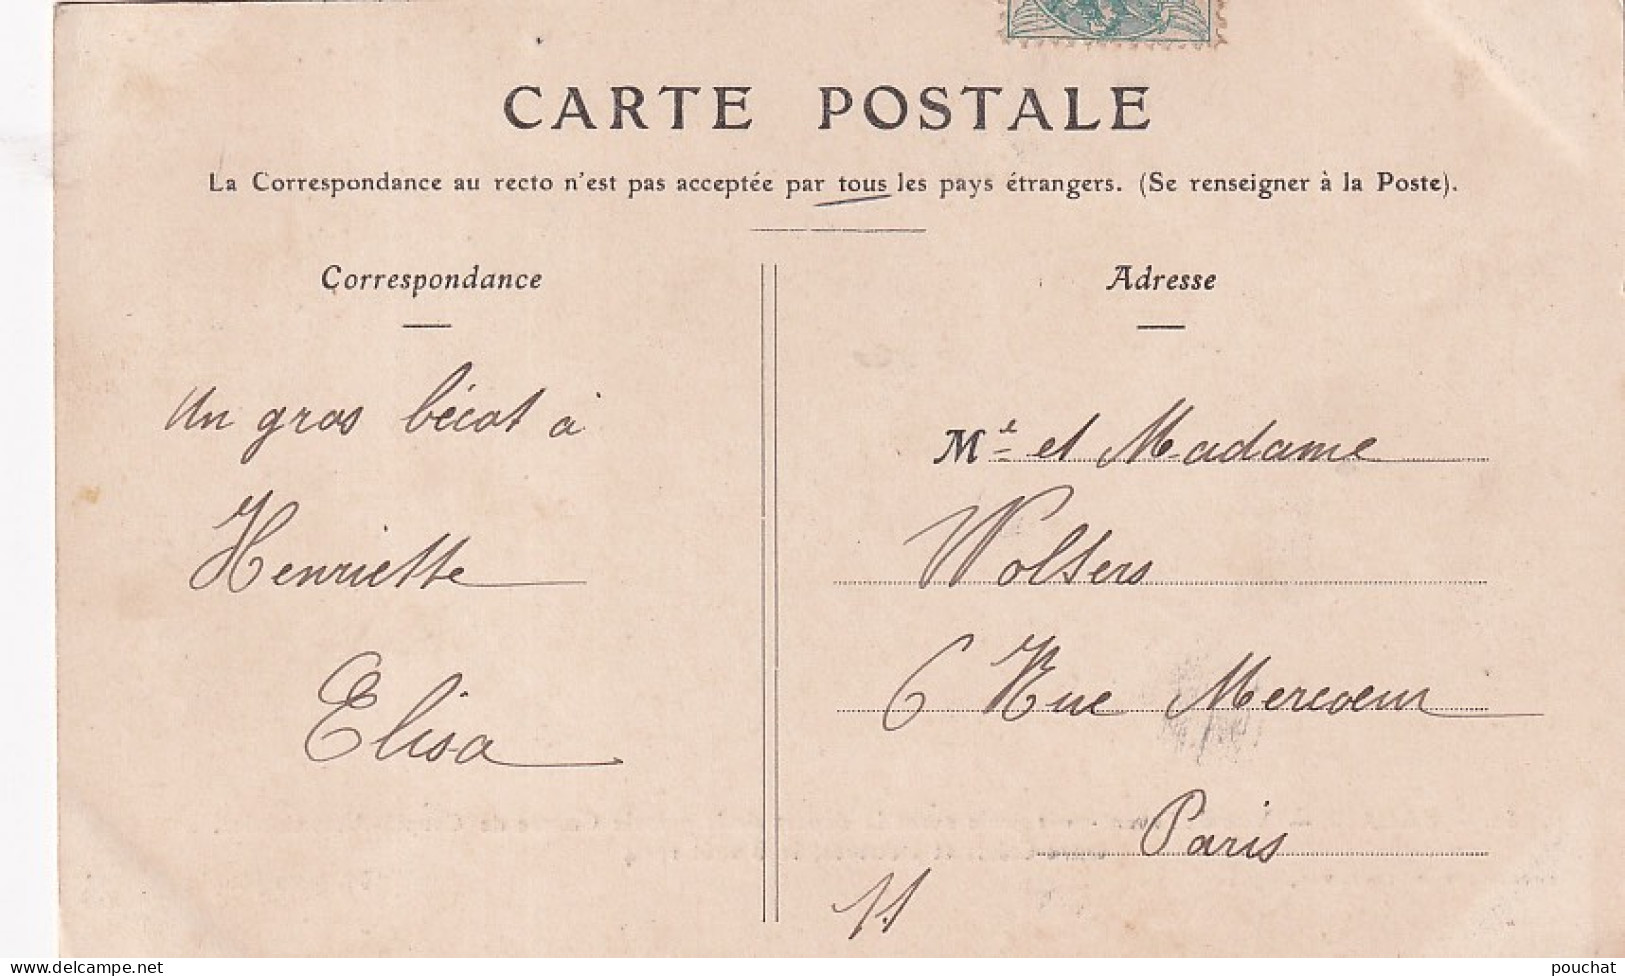 CARTE POSTALE
La Correspondance au recto n'est pas acceptée par tous les pays étrangers. (Se renseigner à la Poste).
Correspondance
Un gros bécot à
Henriette
Elisa
Adresse
Mr et Madame
Wolters
6 Rue Mercoeur
Paris
11
www.delcampe.net
pouchat